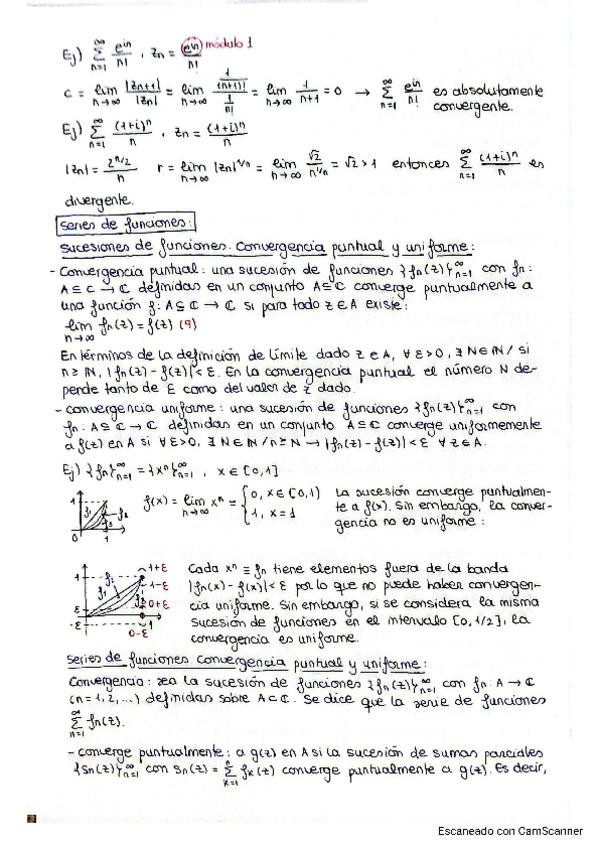 Ej) ∑_{n=1}^{∞} e^{in}/n! , z_n = e^{in}/n! módulo 1
c = lim_{n→∞} |z_{n+1}|/|z_n| = lim_{n→∞} (1/(n+1)!)/(1/n!) = lim_{n→∞} 1/(n+1) = 0 → ∑_{n=1}^{∞} e^{in}/n! es absolutamente
convergente.
Ej) ∑_{n=1}^{∞} (1+i)^n/n , z_n = (1+i)^n/n
|z_n| = 2^{n/2}/n r = lim_{n→∞} |z_n|^{1/n} = lim_{n→∞} √2/n^{1/n} = √2 > 1 entonces ∑_{n=1}^{∞} (1+i)^n/n es
divergente.
series de funciones:
sucesiones de funciones. Convergencia puntual y uniforme:
- Convergencia puntual: una sucesión de funciones {f_n(z)}_{n=1}^{∞} con f_n:
A ⊆ C → ℂ definidas en un conjunto A ⊆ ℂ converge puntualmente a
una función f: A ⊆ ℂ → ℂ si para todo z ∈ A existe:
lim_{n→∞} f_n(z) = f(z) (9)
En términos de la definición de límite dado z ∈ A, ∀ ε > 0, ∃ N ∈ ℕ / si
n ≥ ℕ, |f_n(z) - f(z)| < ε. En la convergencia puntual el número N de-
pende tanto de ε como del valor de z dado.
- convergencia uniforme: una sucesión de funciones {f_n(z)}_{n=1}^{∞} con
f_n: A ⊆ ℂ → ℂ definidas en un conjunto A ⊆ ℂ converge uniformemente
a f(z) en A si ∀ ε > 0, ∃ N ∈ ℕ / n ≥ N → |f_n(z) - f(z)| < ε ∀ z ∈ A.
Ej) {f_n}_{n=1}^{∞} = {x^n}_{n=1}^{∞} , x ∈ [0,1]
1 f_1 f_2 0 1
f(x) = lim_{n→∞} x^n = { 0, x ∈ [0,1) 1, x = 1
La sucesión converge puntualmen-
te a f(x). Sin embargo, la conver-
gencia no es uniforme:
1 f_1 f_2 ε -ε 1+ε 1-ε 0+ε 0-ε 1
Cada x^n ≡ f_n tiene elementos fuera de la banda
|f_n(x) - f(x)| < ε por lo que no puede haber convergen-
cia uniforme. Sin embargo, si se considera la misma
sucesión de funciones en el intervalo [0,1/2], la
convergencia es uniforme.
series de funciones convergencia puntual y uniforme:
Convergencia: sea la sucesión de funciones {f_n(z)}_{n=1}^{∞} con f_n: A → ℂ
(n = 1, 2, ...) definidas sobre A ⊂ ℂ. Se dice que la serie de funciones
∑_{n=1}^{∞} f_n(z).
- converge puntualmente: a g(z) en A si la sucesión de sumas parciales
{S_n(z)}_{n=1}^{∞} con S_n(z) = ∑_{k=1}^{n} f_k(z) converge puntualmente a g(z). Es decir,
Escaneado con CamScanner